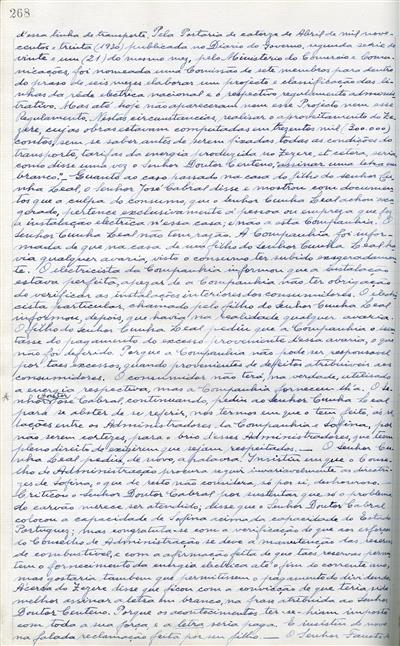 268
dessa linha de transporte. Pela Portaria de catorze de Abril de mil nove-
centos e trinta (1930) publicada no Diario do Governo, segunda serie de
vinte e um (21) do mesmo mez, pelo Ministerio do Comercio e Comu-
nicações, foi nomeada uma Comissão de sete membros para dentro
do praso de seis mezes elaborar um projecto e classificação das li-
nhas da rede electrica nacional e o respectivo regulamento adminis-
trativo. Mas até hoje não apareceram nem esse Projecto nem esse
Regulamento. Nestas circunstancias, realisar o aproveitamento do Ze-
zere, cujas obras estavam computadas em trezentos mil (300.000)
contos, sem se saber antes de serem fixadas todas as condições do
transporte, tarifas da energia produzida no Zezere, et cetera, seria
como disse uma vez o Senhor Doutor Centeno, assinar uma letra em
branco. — Quanto ao caso passado na casa do filho do Senhor Cu-
nha Leal, o Senhor José Cabral disse e mostrou com documen-
tos que a culpa do consumo, que o Senhor Cunha Leal achou exa-
gerado, pertence exclusivamente á pessoa ou empreza que fez
a instalação electrica n'essa casa, e não a esta Companhia. O
Senhor Cunha Leal não tem razão. A Companhia foi infor-
mada de que na casa de um filho do Senhor Cunha Leal ha-
via qualquer avaria, visto o consumo ter subido exageradamen-
te. O electricista da Companhia informou que a instalação
estava perfeita, apezar de a Companhia não ter obrigação
de verificar as instalações interiores dos consumidores. O electri-
cista particular chamado pelo filho do Senhor Cunha Leal
informou, depois, que havia na realidade qualquer avaria.
O filho do Senhor Cunha Leal pediu que a Companhia o isen-
tasse do pagamento do excesso proveniente dessa avaria, o que
não foi deferido. Porque a Companhia não pode ser responsavel
por taes excessos, quando provenientes de defeitos atribuiveis aos
consumidores. O consumidor não terá, na verdade, utilisado
a energia respectiva, mas a Companhia forneceu-lh'a. O Se-
nhor Doutor Cabral, continuando, pediu ao Senhor Cunha Leal
para se abster de se referir, nos termos em que o tem feito, ás re-
lações entre os Administradores da Companhia e Sofina, por
não serem cortezes, para o brio desses Administradores, que teem
pleno direito de exigirem que sejam respeitados. — O Senhor Cu-
nha Leal pede de novo a palavra. Insistiu em que o Conse-
lho de Administração procura seguir invariavelmente as directri-
zes de Sofina, o que de resto não considera, só por si, deshonroso. —
Criticou o Senhor Doutor Cabral por sustentar que só o problema
do carvão merece ser atendido; disse que o Senhor Doutor Cabral
colocou a capacidade de Sofina acima da capacidade do Estado
Portuguez; mas congratulou-se com a verificação de que aos esforços
do Conselho de Administração se deve a manutenção das reservas
de combustivel, e com a afirmação feita de que taes reservas permi-
tem o fornecimento da energia electrica até o fim do corrente ano,
mas gostaria tambem que permitissem o pagamento do dividendo.
Acerca do Zezere disse que ficou com a convicção de que teria sido
melhor assinar a letra em branco, na frase atribuida ao Senhor
Doutor Centeno. Porque os acontecimentos ter-se-hiam imposto
com toda a sua força, e a letra seria paga. E insistiu de novo
na falada reclamação feita por seu filho. — O Senhor Fausto de